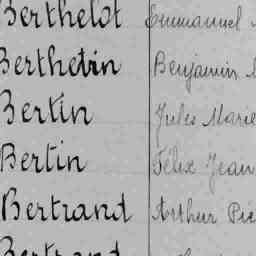 Berthelot Emmanuel
Berthevin Benjamin
Bertin Jules Marie
Bertin Félix Jean
Bertrand Arthur Pie
Bertrand